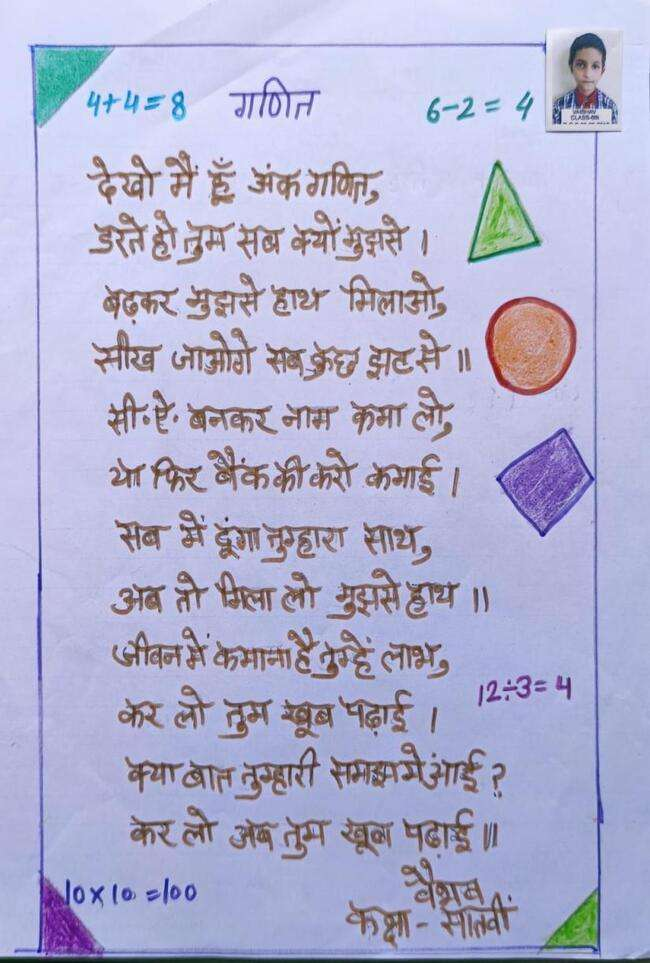 4+4=8 गणित 6-2= 4
VAIBHAV
CLASS-8th
देखो मैं हूँ अंक गणित,
डरते हो तुम सब क्यों मुझसे ।
बढ़कर मुझसे हाथ मिलाओ,
सीख जाओगे सब कुछ झट से ॥
सी॰ऐ॰ बनकर नाम कमा लो,
या फिर बैंक की करो कमाई ।
सब में दूंगा तुम्हारा साथ,
अब तो मिला लो मुझसे हाथ ॥
जीवन में कमाना है तुम्हें लाभ,
कर लो तुम खूब पढ़ाई ।
12÷3=4
क्या बात तुम्हारी समझ में आई ?
कर लो अब तुम खूब पढ़ाई ॥
10×10=100
वैभव
कक्षा - सातवीं